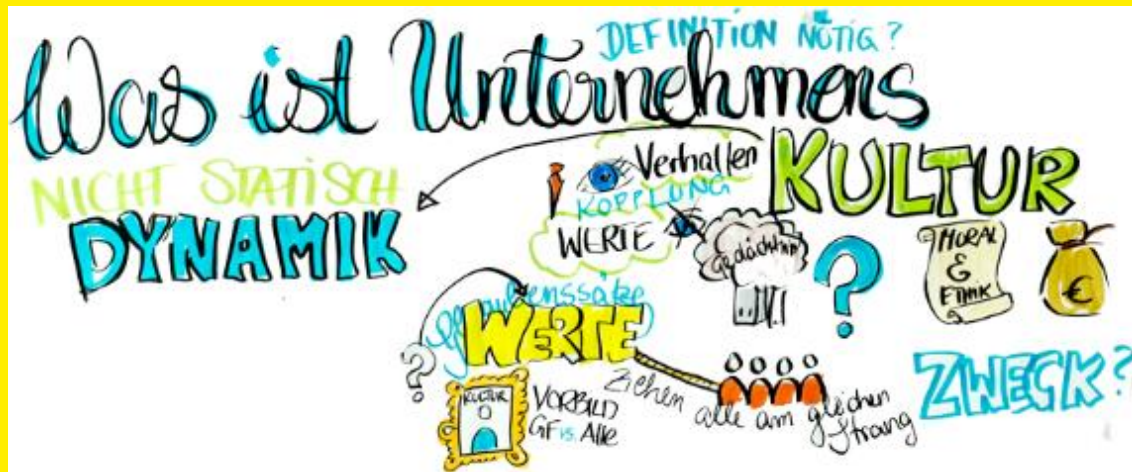 DEFINITION NÖTIG?
Was ist Unternehmens
KULTUR
NICHT STATISCH
DYNAMIK
Verhalten
KOPPLUNG
WERTE
Gedächtnis
V.1
?
MORAL
&
ETHIK
€
Glaubenssätze
WERTE
?
KULTUR
VORBILD
GF vs. Alle
Ziehen alle am gleichen
Strang
ZWECK?